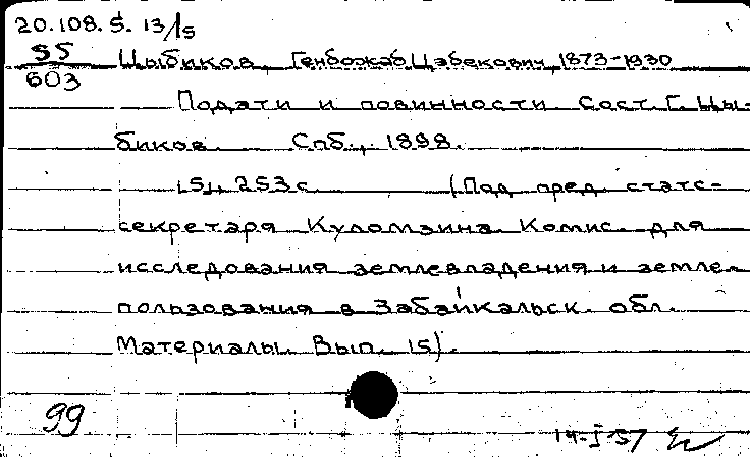 20.108.5. 13/15
55
603
Цыбиков, Генбожаб Цэбекович, 1873-1930
Подати и повинности. Сост. Г. Цы-
биков. Спб., 1898.
, 253 с. (Под пред. статс-
секретаря Куломзина Комис. для
исследования землевладения и земле-
пользования в Забайкальск. обл.
Материалы. Вып. 15).
99
14-I 57